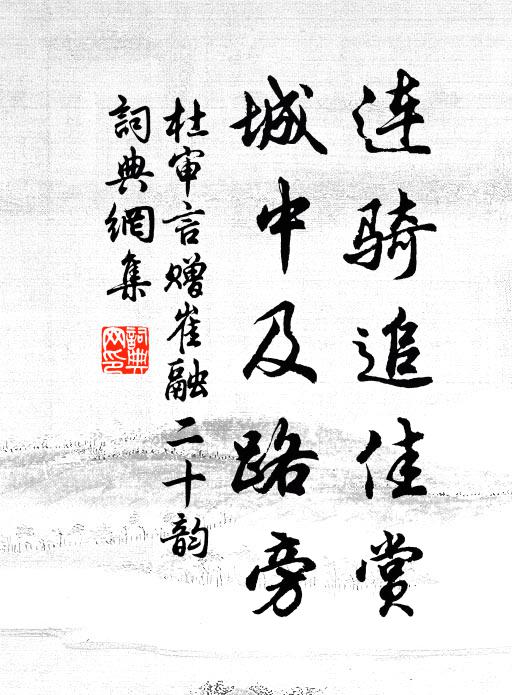 连骑追佳赏
城中及路旁
杜审言赠崔融二十韵
詞典網集
詞典
网印